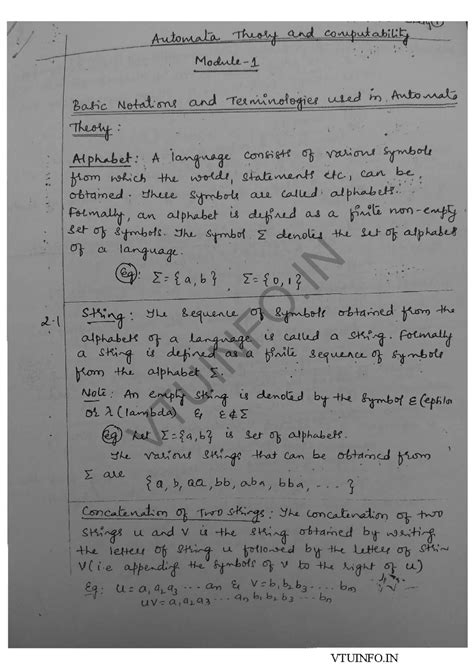 Automata Theory and computability
Module-1
Basic Notations and Terminologies used in Automata
Theory:
Alphabet: A language consists of various symbols
from which the words, statements etc., can be
obtained. These symbols are called alphabets.
Formally, an alphabet is defined as a finite non-empty
set of symbols. The symbol Σ denotes the set of alphabets
of a language.
Eg: Σ={a,b} Σ={0,1}
2-1
String: The sequence of symbols obtained from the
alphabets of a language is called a string. Formally
a string is defined as a finite sequence of symbols
from the alphabet Σ.
Note: An empty string is denoted by the symbol ε(ephlo
or λ(lambda) & ε∉Σ
eg Let Σ={a,b} is set of alphabets.
The various strings that can be obtained from
Σ are
{a, b, aa, bb, aba, bba, ...}
Concatenation of Two strings: The concatenation of two
strings u and v is the string obtained by writing
the letters of string u followed by the letters of strin
v (i.e appending the symbols of v to the right of u)
Eg: u = a₁a₂a₃ ... an & v = b₁b₂b₃ ... bn
uv = a₁a₂a₃ ... an b₁b₂b₃ ... bn
VTUINFO.IN
VTUINFO.IN